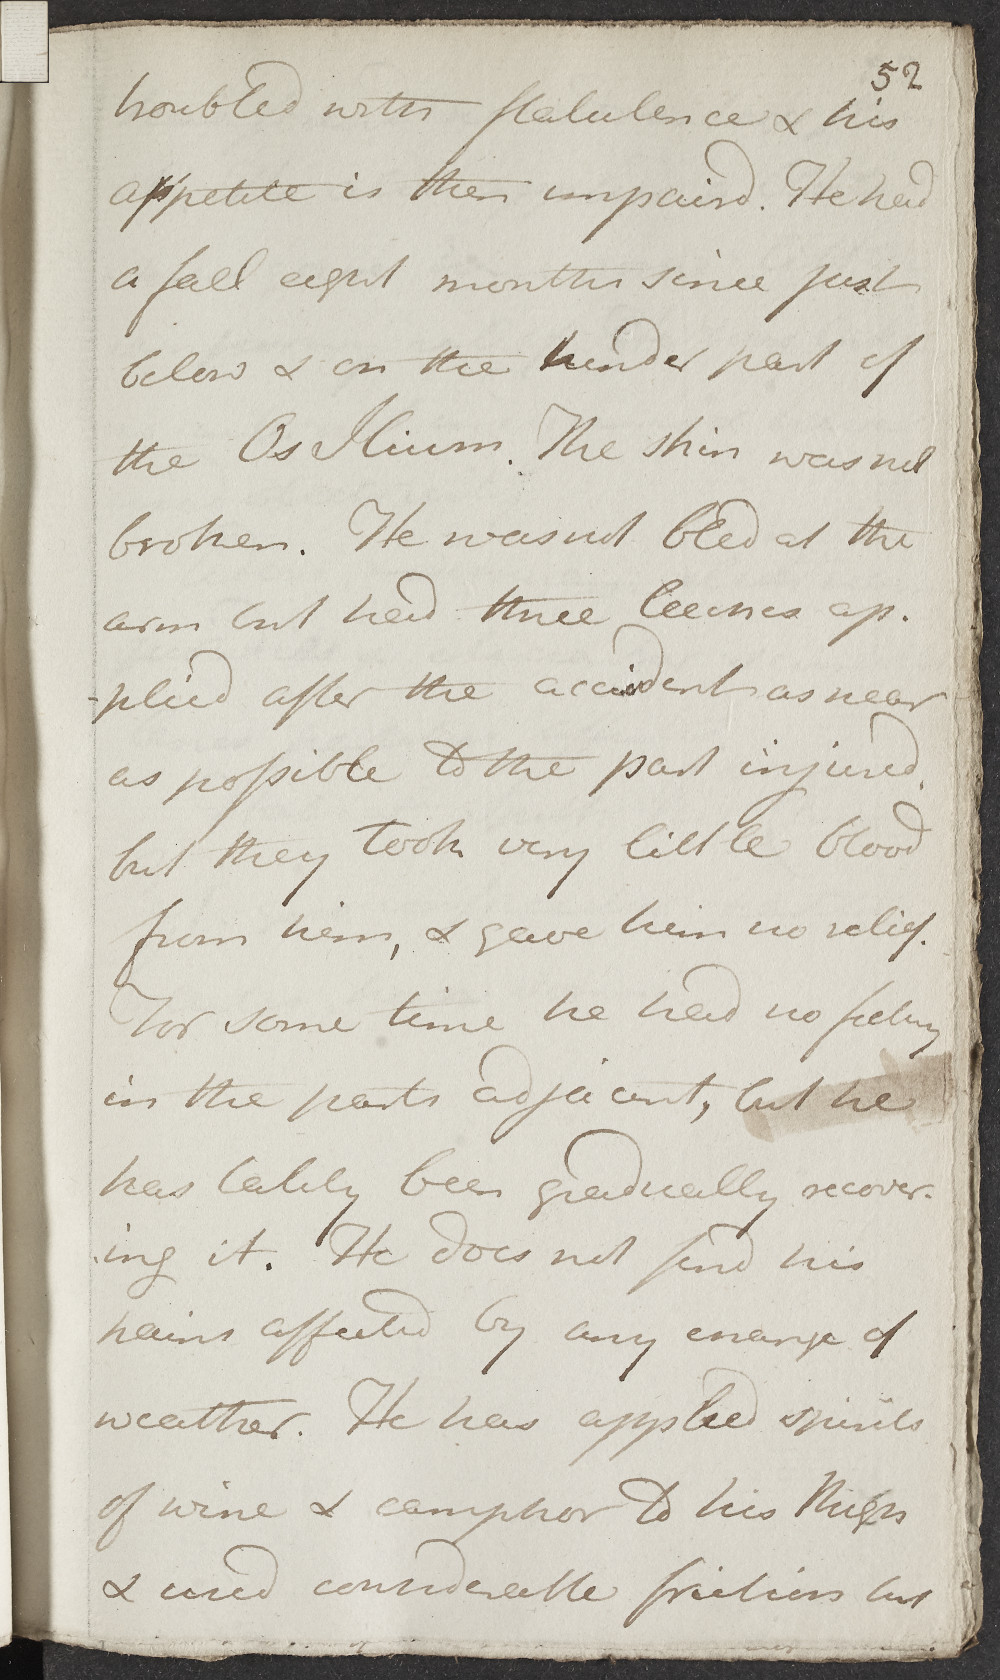 52
troubled with flatulence & his
appetite is then impaird. He had
a fall eight months since just
below & on the hinder part of
the Os Ilium. The skin was not
broken. He was not bled at the
arm but had three leeches ap-
-plied after the accident as near
as possible to the part injured,
but they took very little blood
from him, & gave him no relief.
For some time he had no feeling
in the parts adjacent, but he
has lately been gradually recover-
ing it. He does not find his
pains affected by any change of
weather. He has applied spirits
of wine & camphor to his Thigh
& used considerable friction but